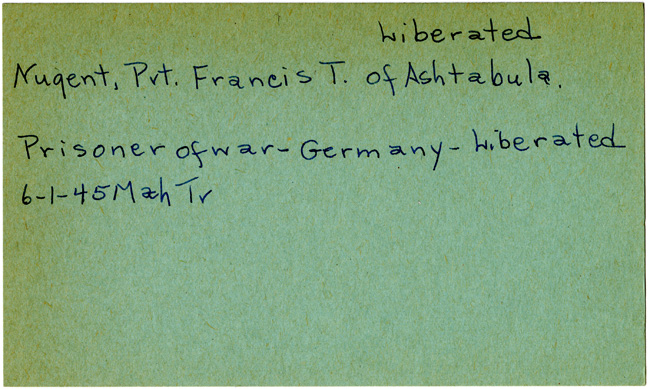 Liberated
Nugent, Pvt. Francis T. of Ashtabula.
Prisoner of war - Germany - Liberated
6-1-45 Mah Tr